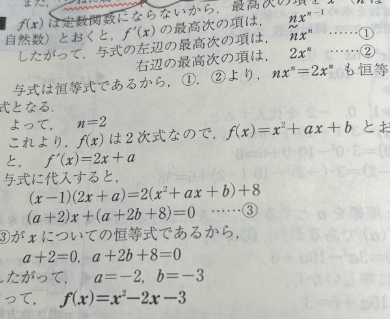 f(x)は定数関数にならないから，最高次の項を
自然数）とおくと，f'(x)の最高次の項は，nxⁿ⁻¹
したがって，与式の左辺の最高次の項は，nxⁿ ……①
右辺の最高次の項は，2xⁿ ……②
与式は恒等式であるから，①，②より，nxⁿ=2xⁿ も恒等
式となる．
よって，n=2
これより，f(x)は2次式なので，f(x)=x²+ax+b とお
と，f'(x)=2x+a
与式に代入すると，
(x−1)(2x+a)=2(x²+ax+b)+8
(a+2)x+(a+2b+8)=0 ……③
③がxについての恒等式であるから，
a+2=0, a+2b+8=0
したがって，a=−2, b=−3
って，f(x)=x²−2x−3